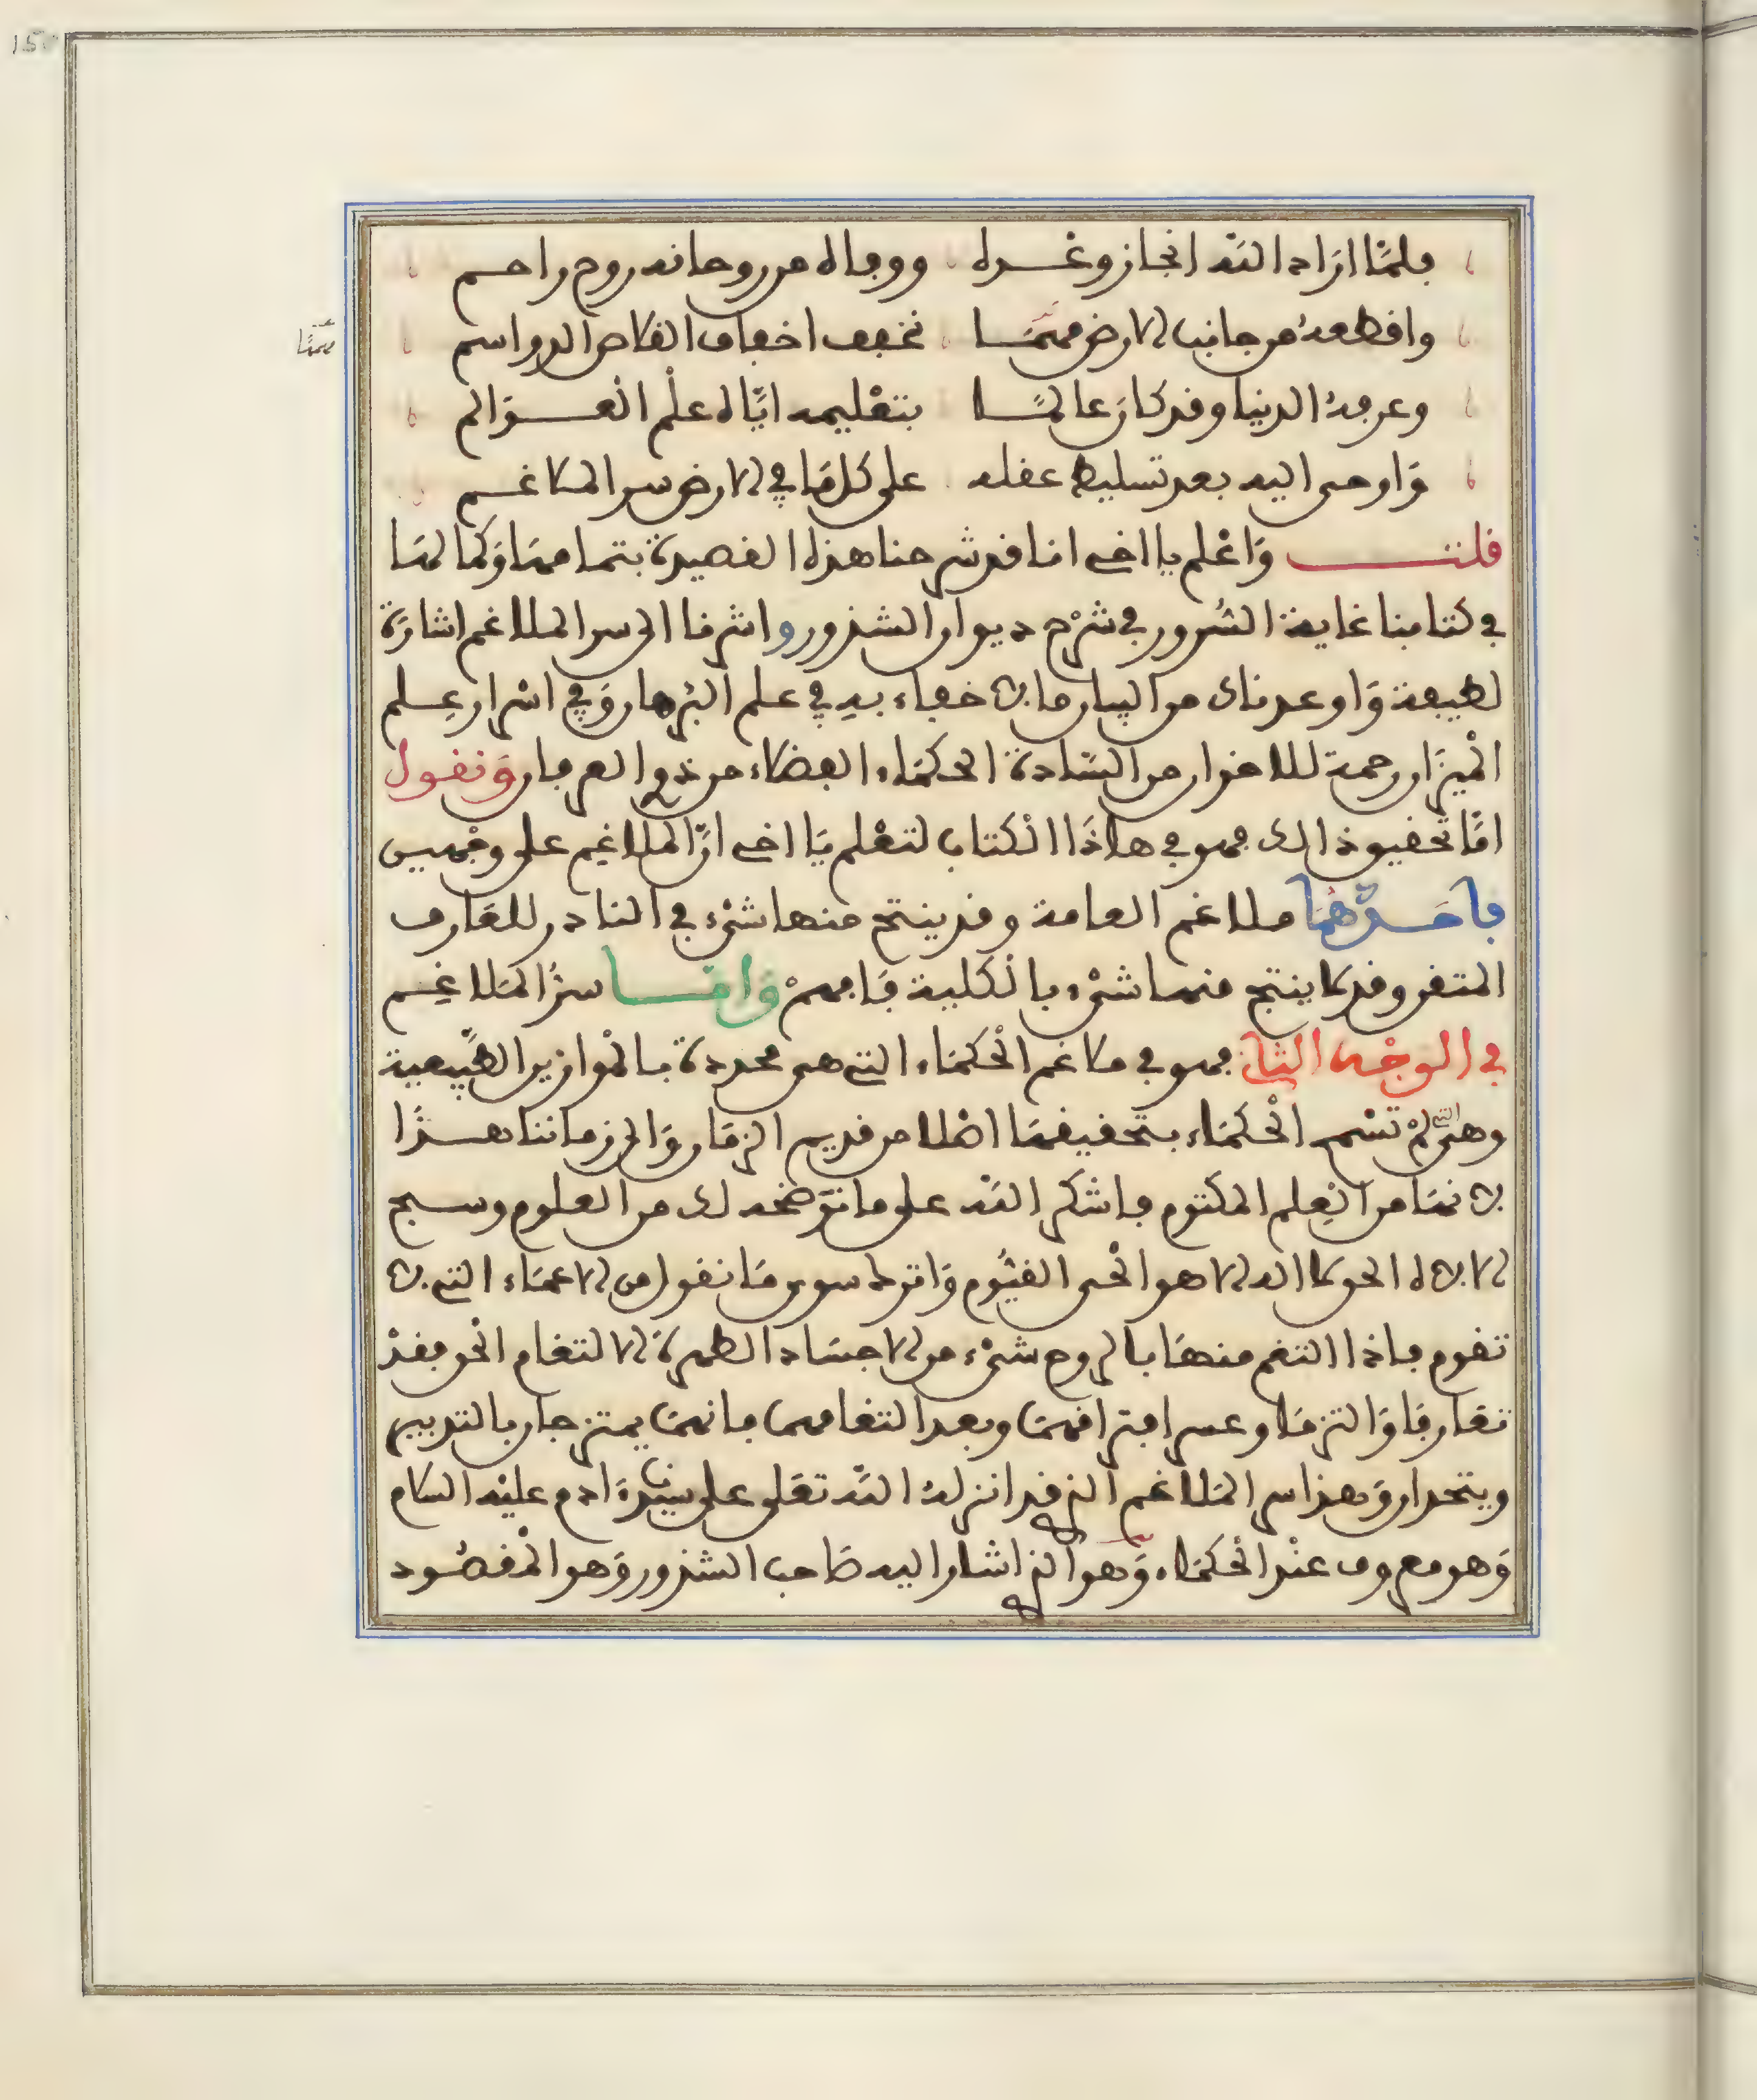 150
فلمّا اراد الله انجاز وعده ووفاه من روحانه روح راحم
واقطعه من جانب الارض مهمها تخفف اخفاف القلاص الرواسم
ممّا
وعرفه الدنيا وقد كان عالمًا بتعليمه ايّاه علم العوالم
وَاوحى اليه بعد تسليط عقله على كل مَا في الارض سر الملاغم
قلت وَاعْلم يا اخي انا قد شرحنا هذه القصيدة بتمامها وَكمالها
في كتابنا غاية السُّرور في شرْح ديوان الشذور واشرنا الى سر الملاغم اشارَة
لطيفة وَاوعدناك من البيان ما لا خفاء به في علم البُرهان وَفي اسْرار عِلم
الْميزَان رحمة للاخوان من السَّادة الحكمَاء الفضلاء من ذوي العرفان وَنقول
امَّا تحقيق ذالك فهو في هاذَا الكتاب لتعْلم يَا اخي انَّ الملاغِم على وجْهين
فأحدُهُمَا ملاغم العامة وقد ينتج منها شيْء في النادر للعَارف
المتقن وقد لا ينتج منها شيْء بالْكلية فَافهمْ وَامّا سرُّ المَلاغِم
في الوجْه الثاني فهو في ملاغم الْحكمَاء التي هي محدودة بالْموازين الطَّبيعية
وهيَ التي لمْ تسْمح الْحكمَاء بتحقيقهَا اصْلا من قديم الزمَان وَالى زماننا هذَا
لانهَا من العِلم المكتوم فاشكر الله على ما نوَضحه لك من العلوم وسبح
الالاه الحق لا اله الا هو الْحي القيُّوم وَاترك سوى مَا نقول من الاعمَاء التي لا
تقوم فاذا التغم منهَا بالروح شيْء من الاجسَاد الطهرة الالتغام الحق فقدْ
تعَارفا وَالتزمَا وعسر افتراقهمَا وبعد التغامهمَا فانهمَا يمتزجان بالتدبير
ويتحدان وَهذا سر المَلاغم الذي قد انزلهُ الله تعَلى على سيّدنا ادم عليْه السلام
وَهو معروف عنْد الْحكمَاء وَهو الذي اشار اليه صَاحب الشذور وَهو الْمقصُود